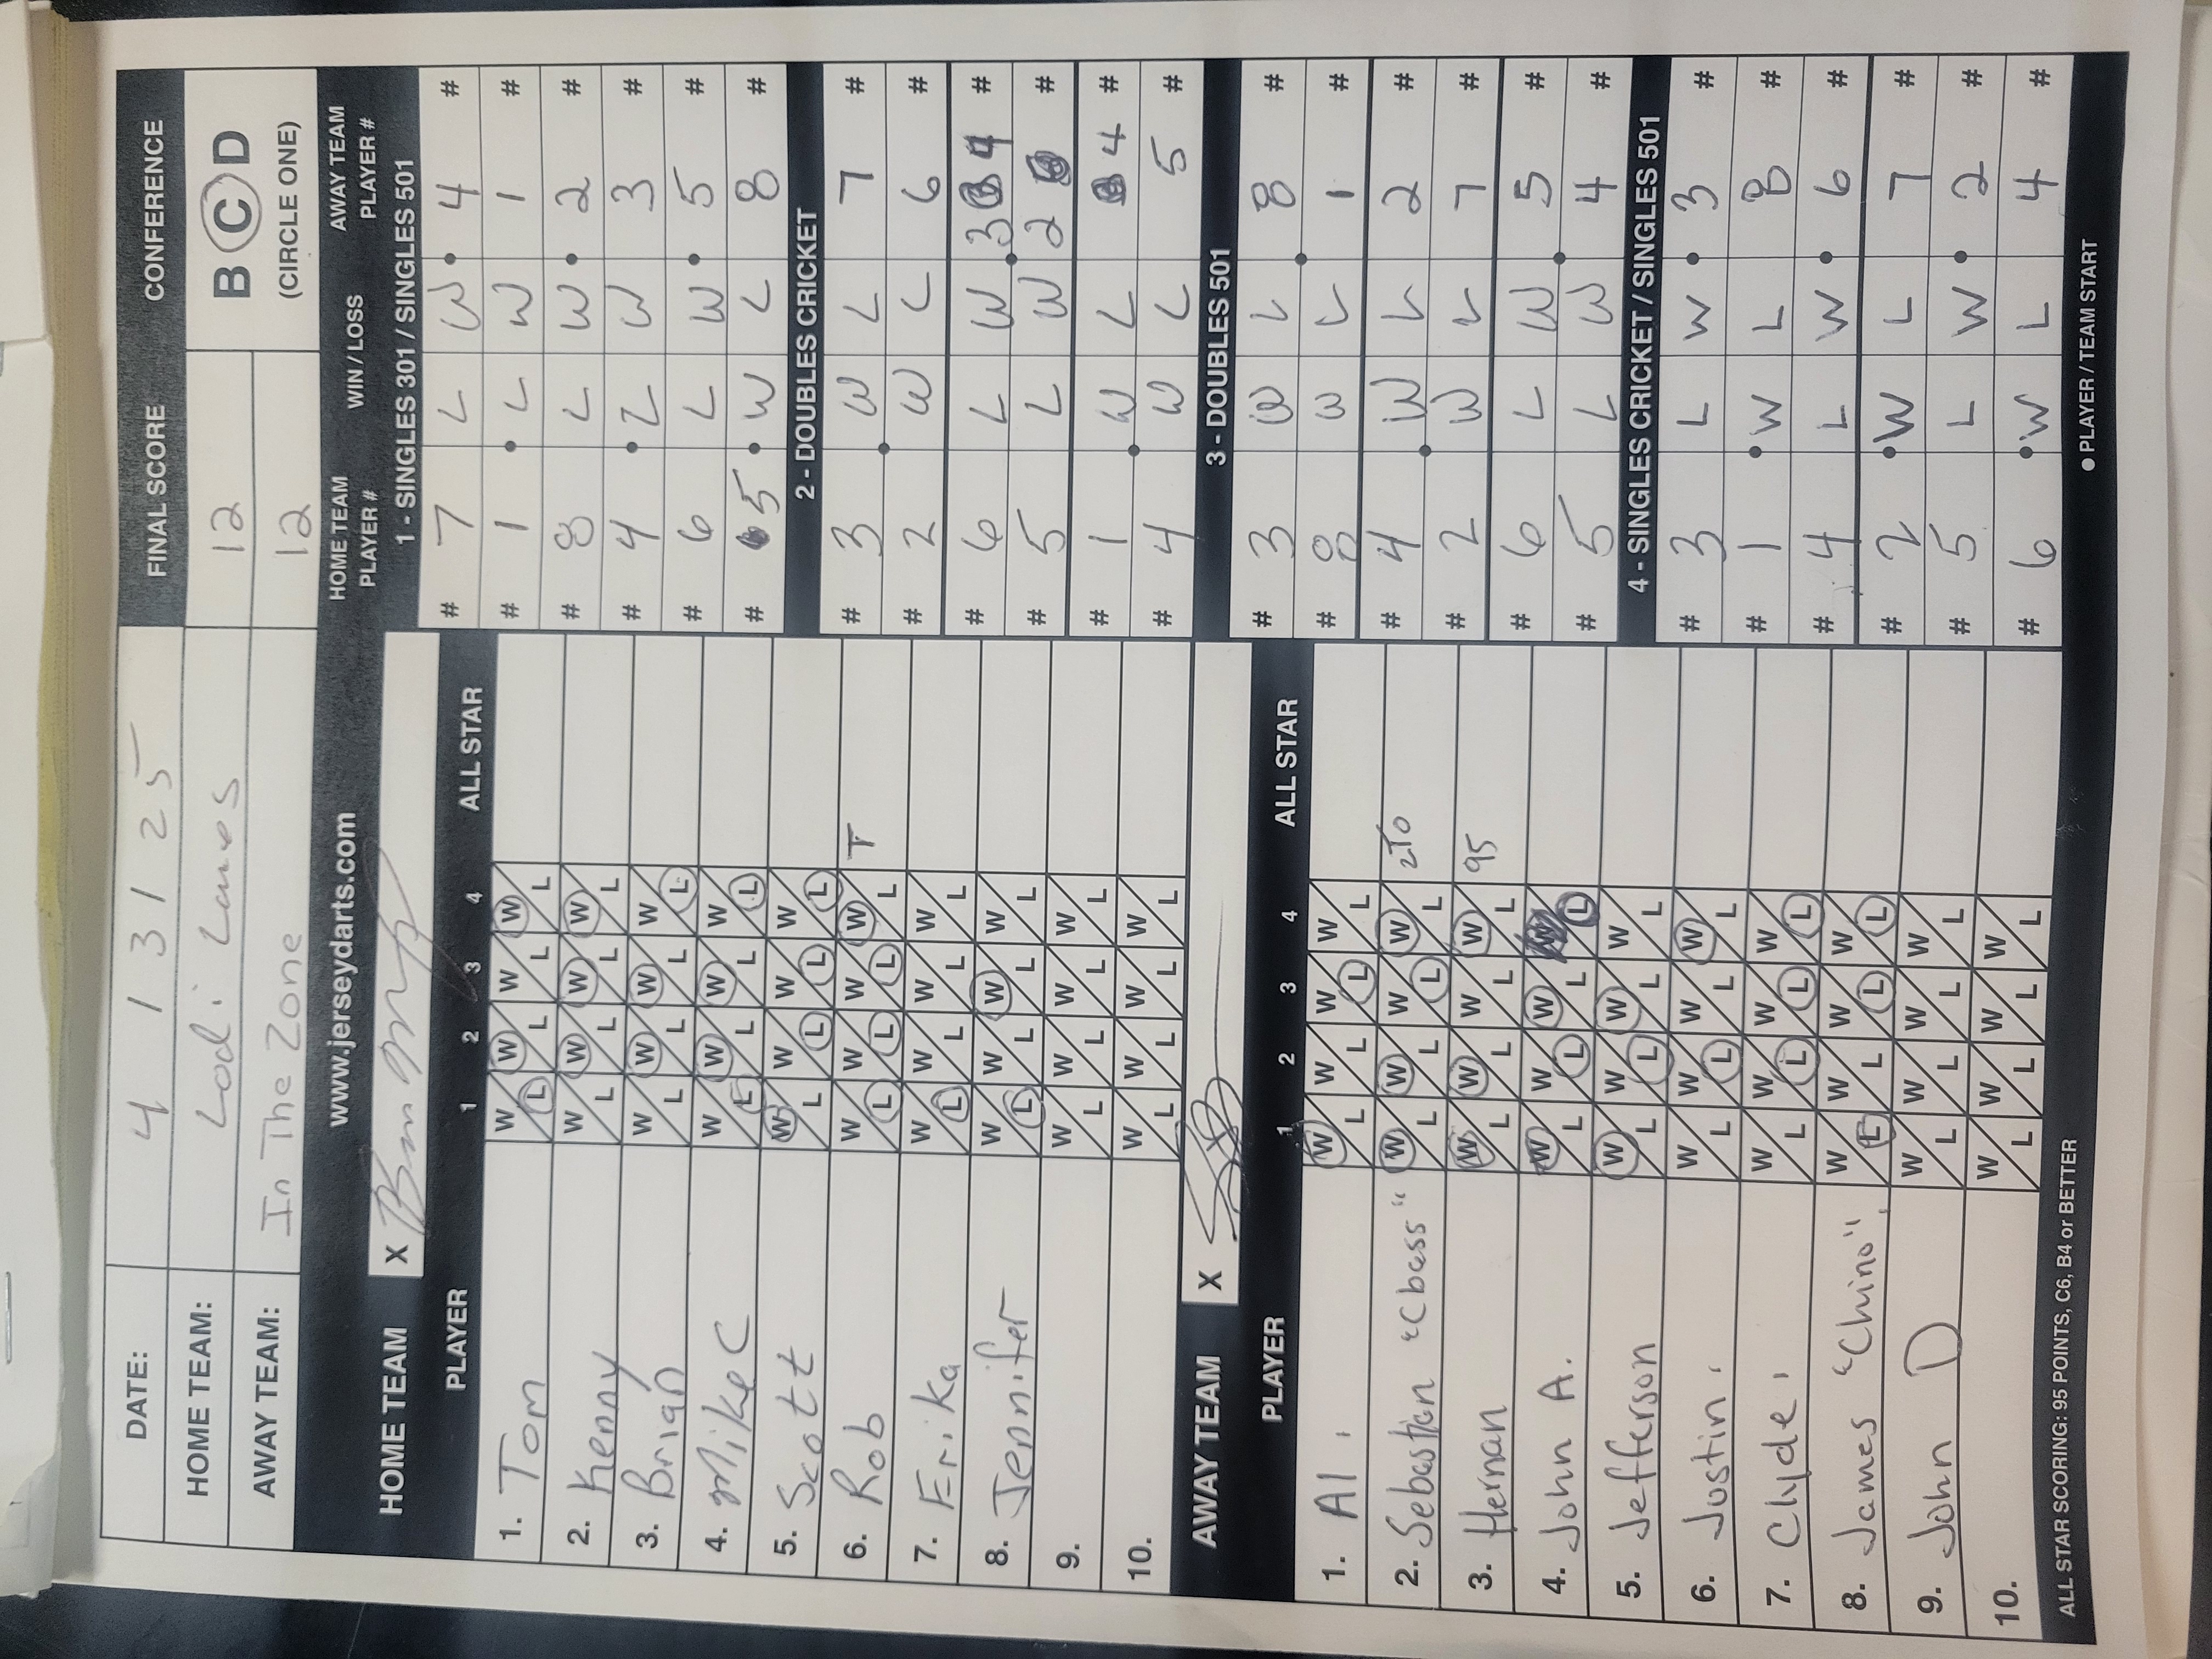 DATE: 4 / 3 / 25 FINAL SCORE CONFERENCE
HOME TEAM: Lodi Lanes 12 B C D
AWAY TEAM: In The Zone 12 (CIRCLE ONE)
www.jerseydarts.com
HOME TEAM X
PLAYER 1 2 3 4 ALL STAR
1. Tom W L W L W L W L
2. Kenny W L W L W L W L
3. Brian W L W L W L W L
4. Mike C W L W L W L W L
5. Scott W L W L W L W L
6. Rob W L W L W L W L T
7. Erika W L W L W L W L
8. Jennifer W L W L W L W L
9. W L W L W L W L
10. W L W L W L W L
AWAY TEAM X
PLAYER 1 2 3 4 ALL STAR
1. Al. W L W L W L W L
2. Sebastian "Cbass" W L W L W L W L 2T0
3. Hernan W L W L W L W L 95
4. John A. W L W L W L L
5. Jefferson W L W L W L W L
6. Justin. W L W L W L W L
7. Clyde. W L W L W L W L
8. James "Chino". W L W L W L W L
9. John D W L W L W L W L
10. W L W L W L W L
ALL STAR SCORING: 95 POINTS, C6, B4 or BETTER
HOME TEAM PLAYER # WIN / LOSS AWAY TEAM PLAYER #
1 - SINGLES 301 / SINGLES 501
# 7 L W 4 #
# 1 L W 1 #
# 8 L W 2 #
# 4 L W 3 #
# 6 L W 5 #
# 5 W L 8 #
2 - DOUBLES CRICKET
# 3 W L 7 #
# 2 W L 6 #
# 6 L W 3 #
# 5 L W 2 #
# 1 W L 4 #
# 4 W L 5 #
3 - DOUBLES 501
# 3 W L 8 #
# 8 W L 1 #
# 4 W L 2 #
# 2 W L 7 #
# 6 L W 5 #
# 5 L W 4 #
4 - SINGLES CRICKET / SINGLES 501
# 3 L W 3 #
# 1 W L 8 #
# 4 L W 6 #
# 2 W L 7 #
# 5 L W 2 #
# 6 W L 4 #
● PLAYER / TEAM START